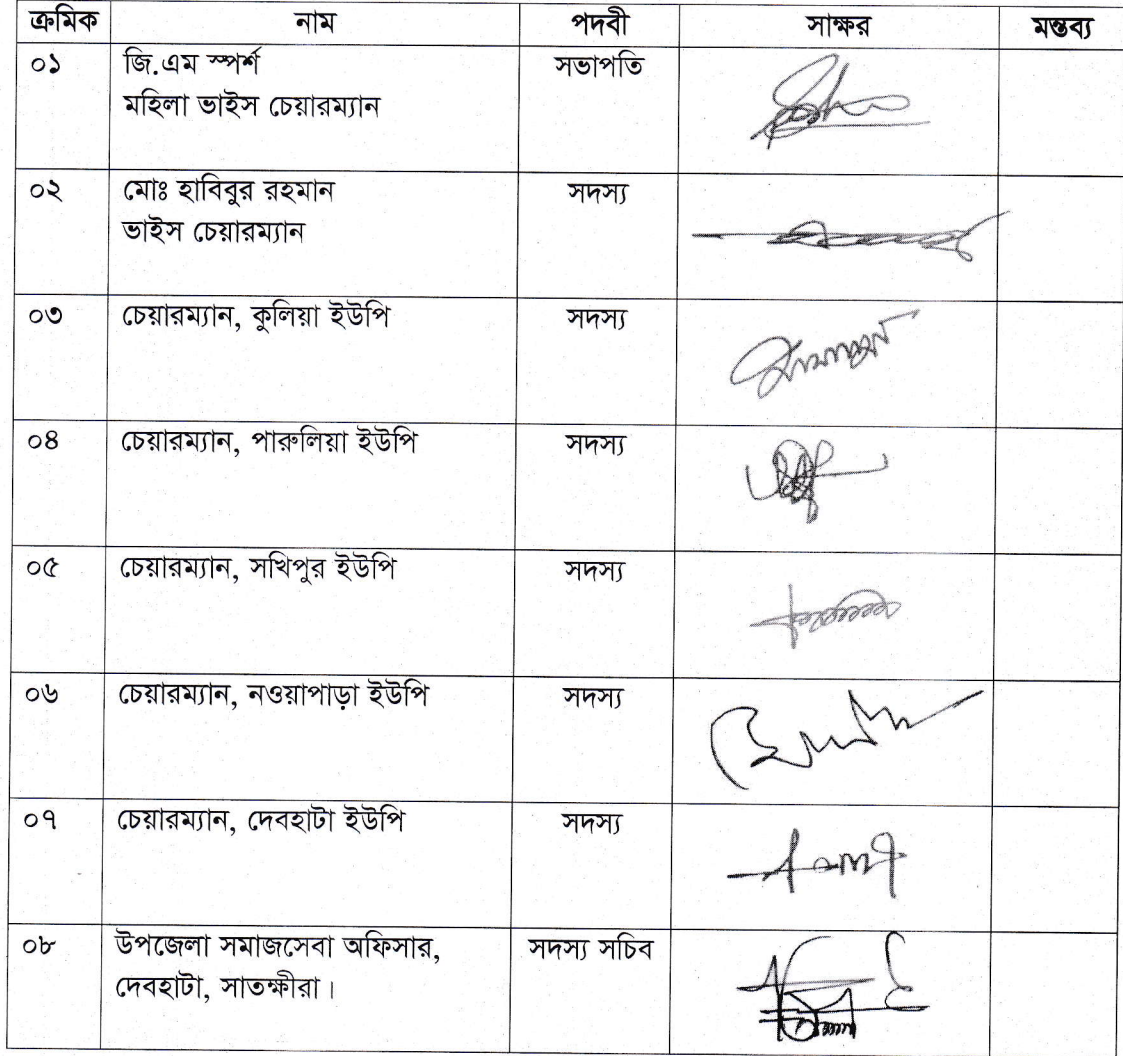 ক্রমিক নাম পদবী সাক্ষর মন্তব্য
০১ জি.এম স্পর্শ সভাপতি
মহিলা ভাইস চেয়ারম্যান
০২ মোঃ হাবিবুর রহমান সদস্য
ভাইস চেয়ারম্যান
০৩ চেয়ারম্যান, কুলিয়া ইউপি সদস্য
০৪ চেয়ারম্যান, পারুলিয়া ইউপি সদস্য
০৫ চেয়ারম্যান, সখিপুর ইউপি সদস্য
০৬ চেয়ারম্যান, নওয়াপাড়া ইউপি সদস্য
০৭ চেয়ারম্যান, দেবহাটা ইউপি সদস্য
০৮ উপজেলা সমাজসেবা অফিসার, সদস্য সচিব
দেবহাটা, সাতক্ষীরা।